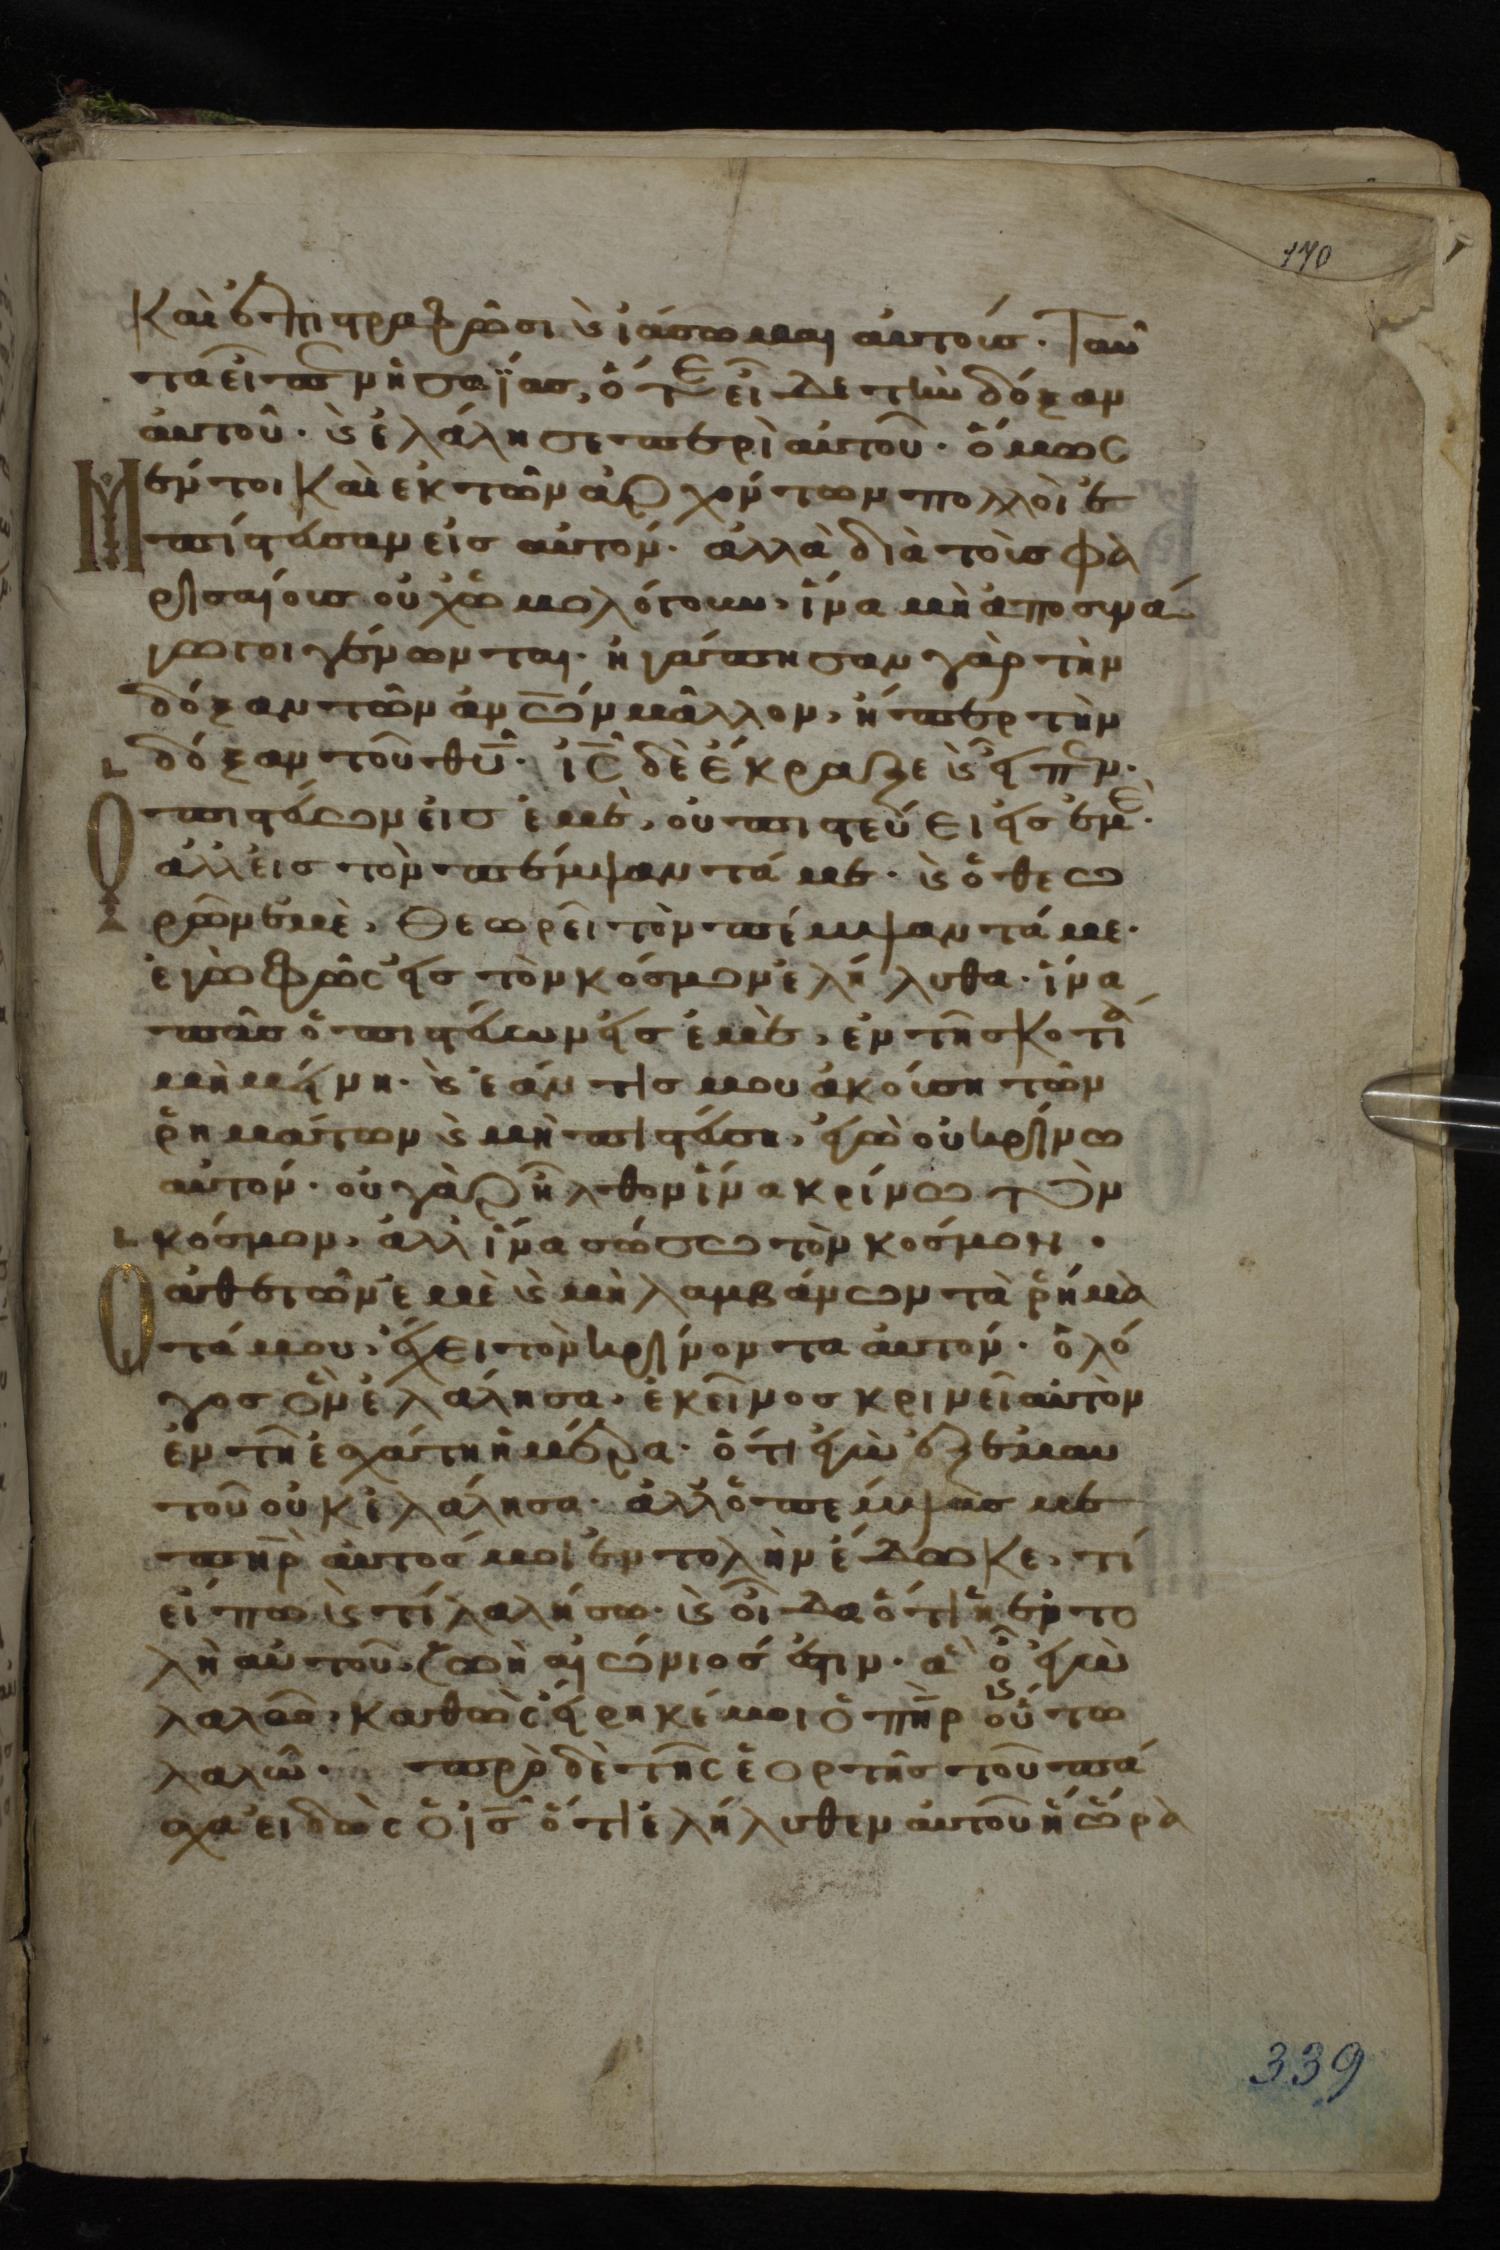 170
Καὶ ἐπιστραφῶσι ϗ ἰάσωμαι αὐτούς. Ταῦ
τα εἶπεν ἡσαΐας, ὅτε εἶδε τὴν δόξαν
αὐτοῦ. ϗ ἐλάλησε περὶ αὐτοῦ. ὅμως
μέντοι Καὶ ἐκ τῶν ἀρχόντων πολλοὶ ἐ
πίστευσαν εἰς αὐτόν. ἀλλὰ διὰ τοὺς φα
ρισαίους οὐχ ὡμολόγουν, ἵνα μὴ ἀποσυνά
γωγοι γένωνται. ἠγάπησαν γὰρ τὴν
δόξαν τῶν ἀνων μᾶλλον, ἤπερ τὴν
δόξαν τοῦ θυ. ις δὲ ἔκραξε ϗ εἶπεν.
Ὁ πιστεύων εἰς ἐμὲ, οὐ πιστεύει εἰς ἐμὲ.
ἀλλ εἰς τὸν πέμψαντά με. ϗ ὁ θεω
ρῶν ἐμὲ, Θεωρεῖ τὸν πέμψαντά με.
ἐγὼ φῶς εἰς τὸν κόσμον ἐλήλυθα. ἵνα
πᾶς ὁ πιστεύων εἰς ἐμὲ, ἐν τῇ σκοτίᾳ
μὴ μείνη. ϗ ἐάν τις μου ἀκούση τῶν
ῥημάτων ϗ μὴ πιστεύση, ἐγὼ οὐ κρίνω
αὐτόν. οὐ γὰρ ἦλθον ἵνα κρίνω τὸν
κόσμον, ἀλλ ἵνα σώσω τὸν κόσμον.
Ὁ ἀθετῶν ἐμὲ ϗ μὴ λαμβάνων τὰ ῥήμα
τά μου, ἔχει τὸν κρίνοντα αὐτόν. ὁ λό
γος ὃν ἐλάλησα, ἐκεῖνος κρινεῖ αὐτὸν
ἐν τῇ ἐσχάτη ἡμέρα. ὅτι ἐγὼ ἐξ ἐμαυ
τοῦ οὐκ ἐλάλησα. ἀλλ ὁ πέμψας με
πηρ αὐτός μοι ἐντολὴν ἔδωκε, τί
εἴπω ϗ τί λαλήσω. ϗ οἶδα ὅτι ἡ ἐντο
λὴ αὐτοῦ, ζωὴ αἰώνιός ἐστιν. ἃ οὖν ἐγὼ
λαλῶ, καθὼς εἴρηκέ μοι ὁ πηρ οὕτω
λαλῶ. πρὸ δὲ τῆς ἑορτῆς τοῦ πά
σχα εἰδὼς ὁ ις ὅτι ἐλήλυθεν αὐτοῦ ἡ ὥρα
339